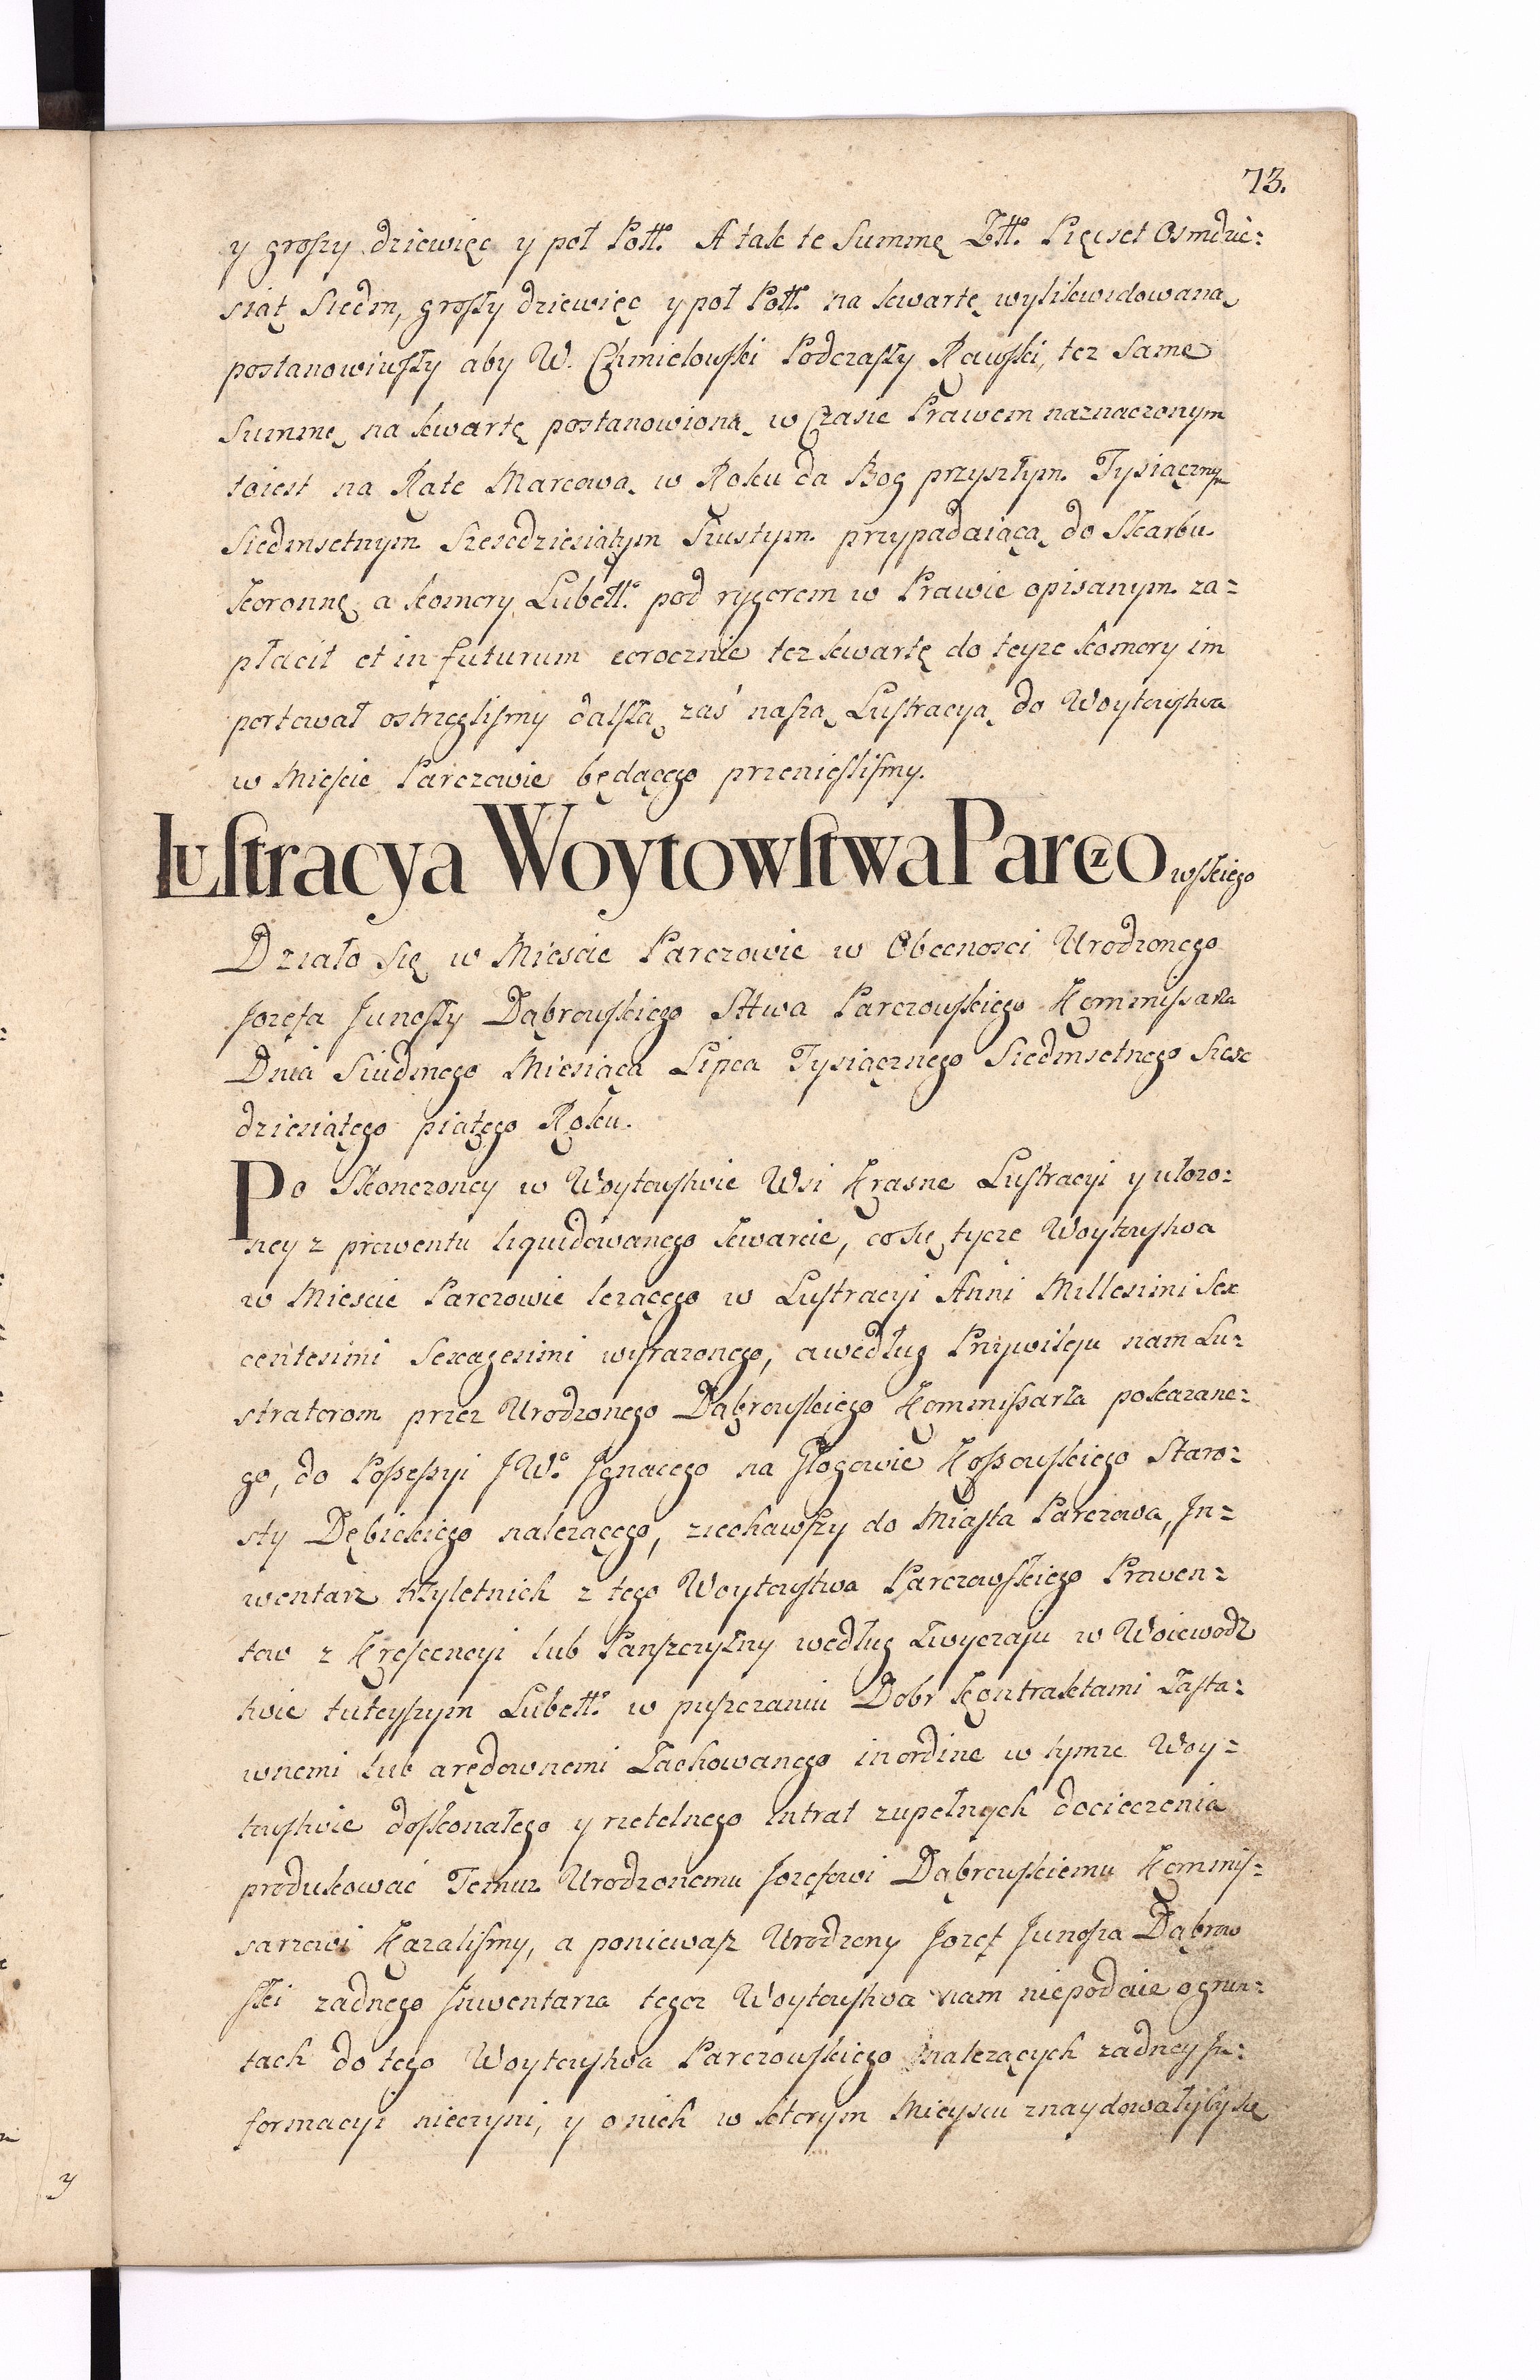 73.
y groszy dziewięc y poł Poll. A tak te Summę Zll. Pięcset Osmdzie=
siąt Siedm, groszy dziewięc y poł Poll. na kwartę wylikwidowaną
postanowiwszy aby W. Chmielowski Podczaszy Rawski, tez same
Summę na kwartę postanowioną w Czasie Prawem naznaczonym
toiest na Ratę Marcową w Roku da Bog przyszłym Tysiącznym
Siedmsetnym Szescdziesiątym Szustym przypadaiącą do Skarbu
Koronnę a komory Lubell: pod rygorem w Prawie opisanym za=
płacił et in futurum corocznie tez kwartę do teyze komory im
portował ostrzeglismy dalszą zaś naszą Lustracyą do Woytowstwa
w Mieście Parczowie będącego przenieslismy.
Lustracya Woytowstwa Parczowskiego
Działo Się w Miescie Parczowie w Obecnosci Urodzonego
Jozefa Junoszy Dąbrowskiego Sttwa Parczowskiego Kommissarza
Dnia Siudmego Miesiąca Lipca Tysiącznego Siedmsetnego Szesc
dziesiątego piątego Roku.
Po Skonczoney w Woytowstwie Wsi Krasne Lustracyi y ułozo=
ney z prowentu liquidowanego kwarcie, co się tycze Woytowstwa
w Miescie Parczowie lezącego w Lustracyi Anni Millesimi Sex
centesimi Sexagesimi wyrazonego, a według Przywileju nam Lu=
stratorom przez Urodzonego Dąbrowskiego Kommissarza pokazane=
go, do Possessyi JWo Jgnacego na Głogowie Kossowskiego Staro=
sty Dębickiego nalezącego, ziechawszy do Miasta Parczowa, Jn=
wentarz trzyletnich z tego Woytowstwa Parczowskiego Prowen=
tow z Krescencyi lub Panszczyzny według Zwyczaju w Woiewodz
twie tuteyszym Lubell: w puszczaniu Dobr Kontraktami Zasta=
wnemi lub arędownemi Zachowanego in ordine w tymze Woy=
towstwie doskonałego y rzetelnego intrat zupełnych docieczenia
produkować Temuz Urodzonemu Jozefowi Dąbrowskiemu Kommis=
sarzowi Kazalismy, a poniewasz Urodzony Jozef Junosza Dąbrow
ski zadnego Jnwentarza tegoz Woytowstwa nam niepodaie o grun=
tach do tego Woytowstwa Parczowskiego nalezących zadney Jn=
formacyi nieczyni, y o nich w ktorym Mieyscu znaydowałyby się
y